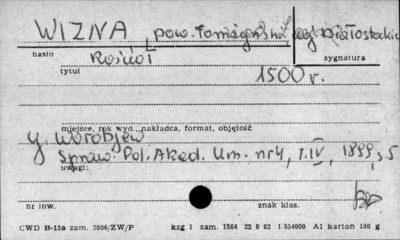 WIZNA, pow. Łomżyński
hasło Kościół sygnatura
tytuł 1500 r.
miejsce, rok wyd., nakładca, format, objętość
Spraw. Pol. Akad. Um. nr 4, t. IV, 1899, s. 5
uwagi:
nr inw. znak klas.
CWD B-15a zam. 2096/ZW/P kzg 1 zam. 1564 22 8 62 1.534000 A1 karton 180 g